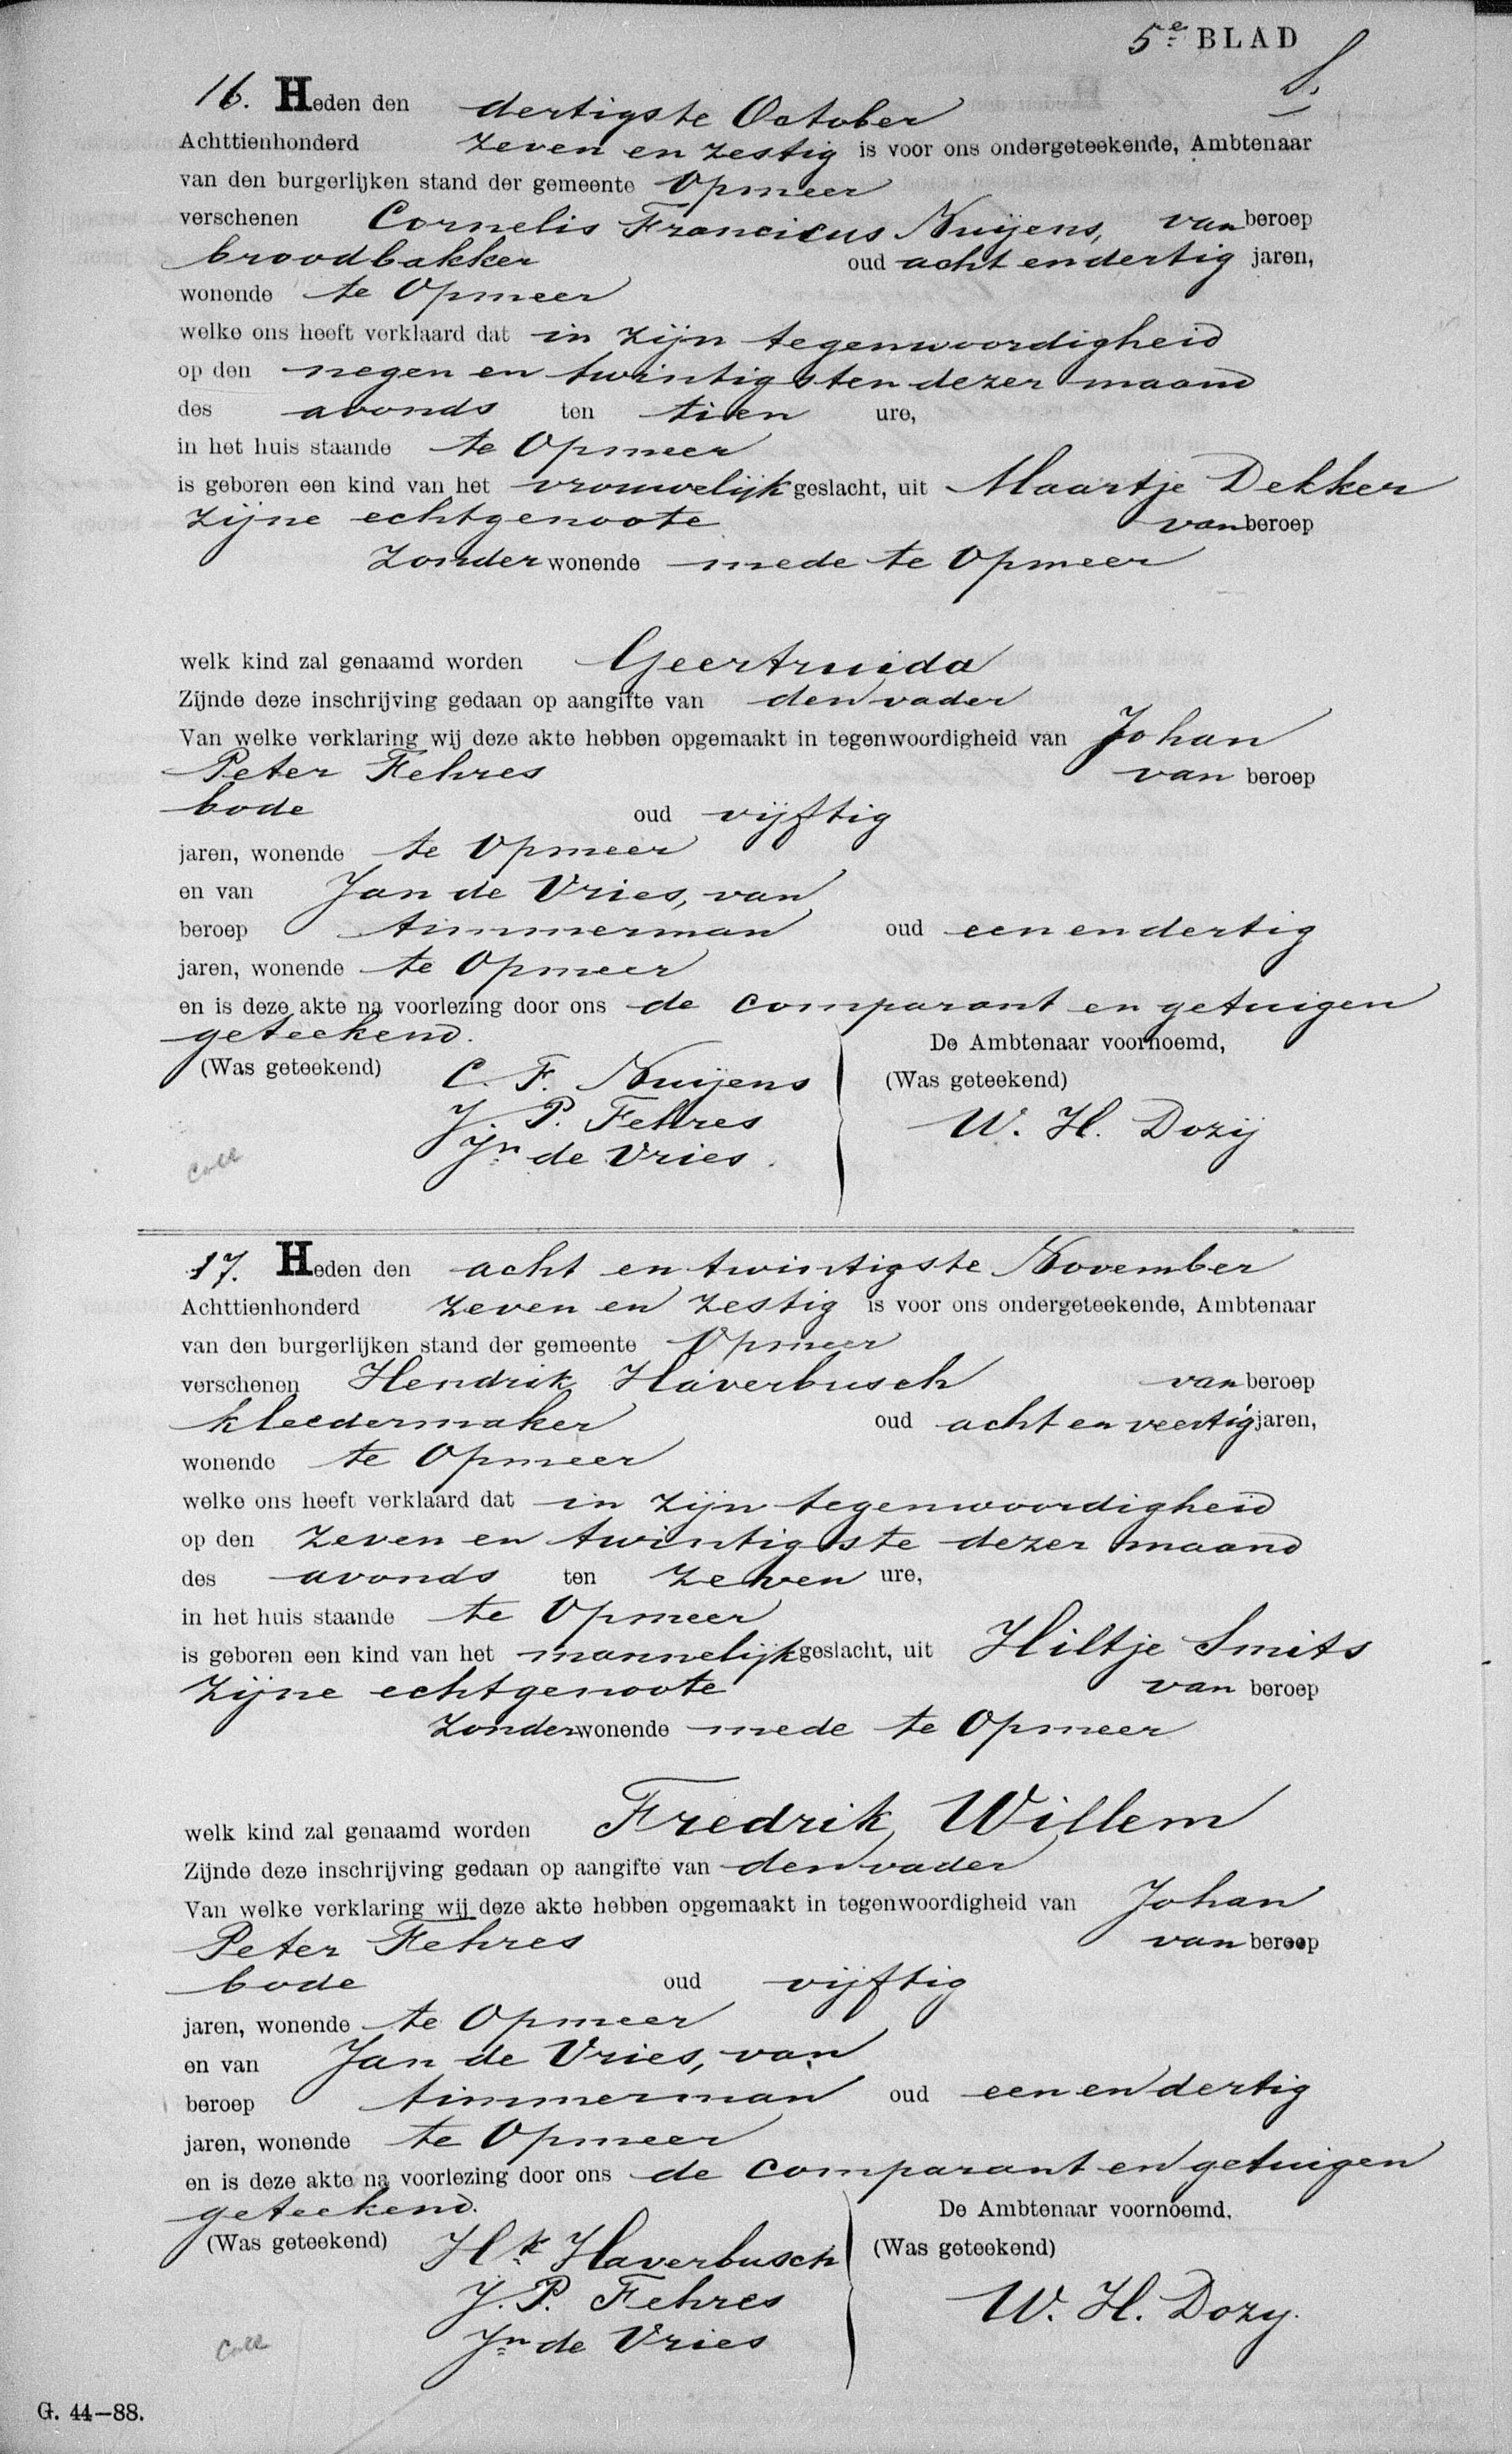 5e BLAD
16. Heden den dertigste October
Achttienhonderd zeven en zestig is voor ons ondergeteekende, Ambtenaar
van den burgerlijken stand der gemeente Opmeer
verschenen Cornelis Franciscus Nuijens, van beroep
broodbakker oud acht en dertig jaren,
wonende te Opmeer
welke ons heeft verklaard dat in zijn tegenwoordigheid
op den negen en twintigsten dezer maand
des avonds ten tien ure,
in het huis staande te Opmeer
is geboren een kind van het vrouwelijk geslacht, uit Maartje Dekker
zijne echtgenoote van beroep
zonder wonende mede te Opmeer
welk kind zal genaamd worden Geertruida
Zijnde deze inschrijving gedaan op aangifte van den vader
Van welke verklaring wij deze akte hebben opgemaakt in tegenwoordigheid van Johan
Peter Fehres van beroep
bode oud vijftig
jaren, wonende te Opmeer
en van Jan de Vries, van
beroep timmerman oud een en dertig
jaren, wonende te Opmeer
en is deze akte na voorlezing door ons de comparant en getuigen
geteekend. De Ambtenaar voornoemd,
(Was geteekend) C. F. Nuijens (Was geteekend)
J. P. Fehres W. H. Dozij
Jn de Vries.
Coll
17. Heden den acht en twintigste November
Achttienhonderd zeven en zestig is voor ons ondergeteekende, Ambtenaar
van den burgerlijken stand der gemeente Opmeer
verschenen Hendrik Haverbusch van beroep
kleedermaker oud acht en veertig jaren,
wonende te Opmeer
welke ons heeft verklaard dat in zijn tegenwoordigheid
op den zeven en twintigste dezer maand
des avonds ten zeven ure,
in het huis staande te Opmeer
is geboren een kind van het mannelijk geslacht, uit Hiltje Smits
zijne echtgenoote van beroep
zonder wonende mede te Opmeer
welk kind zal genaamd worden Fredrik Willem
Zijnde deze inschrijving gedaan op aangifte van den vader
Van welke verklaring wij deze akte hebben opgemaakt in tegenwoordigheid van Johan
Peter Fehres van beroep
bode oud vijftig
jaren, wonende te Opmeer
en van Jan de Vries, van
beroep timmerman oud een en dertig
jaren, wonende te Opmeer
en is deze akte na voorlezing door ons de comparant en getuigen
geteekend. De Ambtenaar voornoemd,
(Was geteekend) Hk Haverbusch (Was geteekend)
J. P. Fehres W. H. Dozy.
Jn de Vries
Coll
G. 44—88.